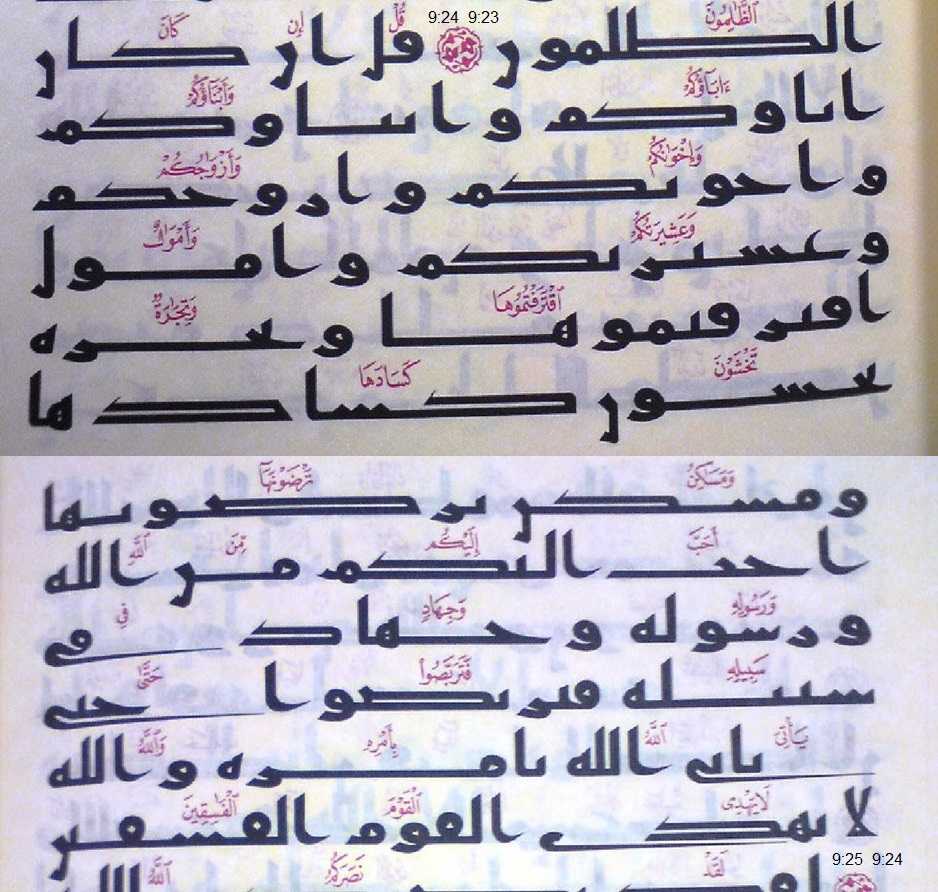 9:24 9:23
ٱلظَّٰلِمُونَ قُلْ إِن كَانَ
الظلمون قل ان كان
ءَابَآؤُكُمْ وَأَبْنَآؤُكُمْ
اباوكم وابناوكم
وَإِخْوَٰنُكُمْ وَأَزْوَٰجُكُمْ
واخونكم وازوجكم
وَعَشِيرَتُكُمْ وَأَمْوَٰلٌ
وعشيرتكم وامول
ٱقْتَرَفْتُمُوهَا وَتِجَٰرَةٌ
اقترفتموها وتجره
تَخْشَوْنَ كَسَادَهَا
تخشون كسادها
وَمَسَٰكِنُ تَرْضَوْنَهَآ
ومسكن ترضونها
أَحَبَّ إِلَيْكُم مِّنَ ٱللَّهِ
احب اليكم من الله
وَرَسُولِهِۦ وَجِهَادٍ فِى
ورسوله وجهاد فى
سَبِيلِهِۦ فَتَرَبَّصُوا۟ حَتَّىٰ
سبيله فتربصوا حتى
يَأْتِىَ ٱللَّهُ بِأَمْرِهِۦ وَٱللَّهُ
ياتى الله بامره والله
لَا يَهْدِى ٱلْقَوْمَ ٱلْفَٰسِقِينَ
لا يهدى القوم الفسقين
9:25 9:24
لَقَدْ نَصَرَكُمُ ٱللَّهُ